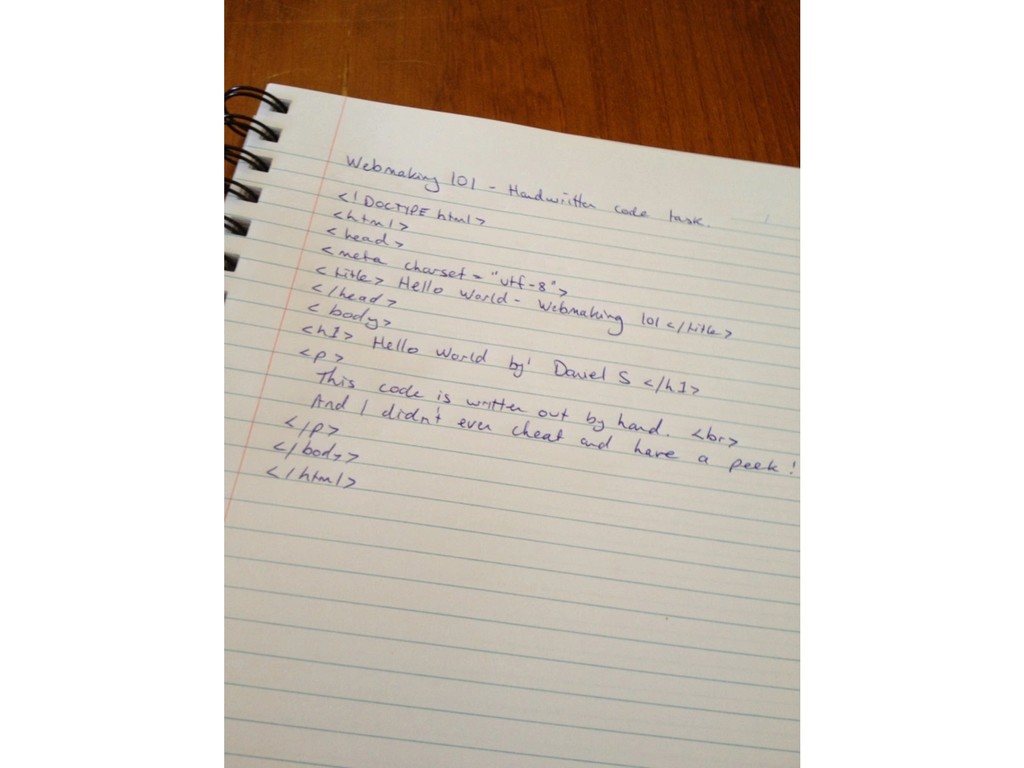 Webmaking 101 - Handwritten code task.
<!DOCTYPE html>
<html>
<head>
<meta charset = "utf-8">
<title> Hello World - Webmaking 101 </title>
</head>
<body>
<h1> Hello World by' Daniel S </h1>
<p>
This code is written out by hand. <br>
And I didn't even cheat and have a peek!
</p>
</body>
</html>